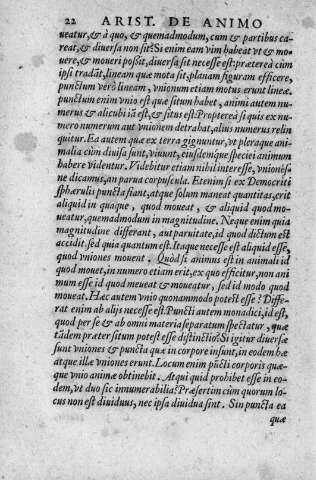 22 ARIST. DE ANIMO
ueatur, & à quo, & quemadmodum, cum & partibus ca-
reat, & diuersa non sit? Si enim eam vim habeat vt & mo-
uere, & moueri possit, diuersa sit necesse est: præterea cùm
ipsi tradāt, lineam quæ mota sit, planam figuram efficere,
punctum verò lineam, vnionum etiam motus erunt lineæ.
punctum enim vnio est quæ situm habet, animi autem nu-
merus & alicubi iā est, & situs est: Proptereà si quis ex nu-
mero numerum aut vnionem detrahat, alius numerus relin
quitur. Ea autem quæ ex terra gignuntur, vt pleraque ani-
malia cùm diuisa sunt, viuunt, eiusdemque speciei animum
habere videntur. Videbitur etiam nihil interesse, vnionés-
ne dicamus, an parua corpuscula. Etenim si ex Democriti
sphærulis puncta fiant, atque solum maneat quantitas, erit
aliquid in quaque, quod moueat, & aliquid quod mo-
ueatur, quemadmodum in magnitudine. Neque enim quia
magnitudine differant, aut paruitate, id quod dictum est
accidit, sed quia quantum est. Itaque necesse est aliquid esse,
quod vniones mouent. Quòd si animus est in animali id
quod mouet, in numero etiam erit, ex quo efficitur, non ani
mum esse id quod moueat & moueatur, sed id modo quod
moueat. Hæc autem vnio quonammodo potest esse? Diffe-
rat enim ab alijs necesse est. Puncti autem monadici, id est,
quod per se & ab omni materia separatum spectatur, quæ
tādem præter situm potest esse distinctio? Si igitur diuersæ
sunt vniones & puncta quæ in corpore insunt, in eodem hæ
atque illæ vniones erunt. Locum enim pūcti corporis quæ-
que vnio animæ obtinebit. Atqui quid prohibet esse in eo-
dem, vt duo sic innumerabilia? Præsertim cùm quorum lo-
cus non est diuiduus, nec ipsa diuidua sint. Sin puncta ea
quæ